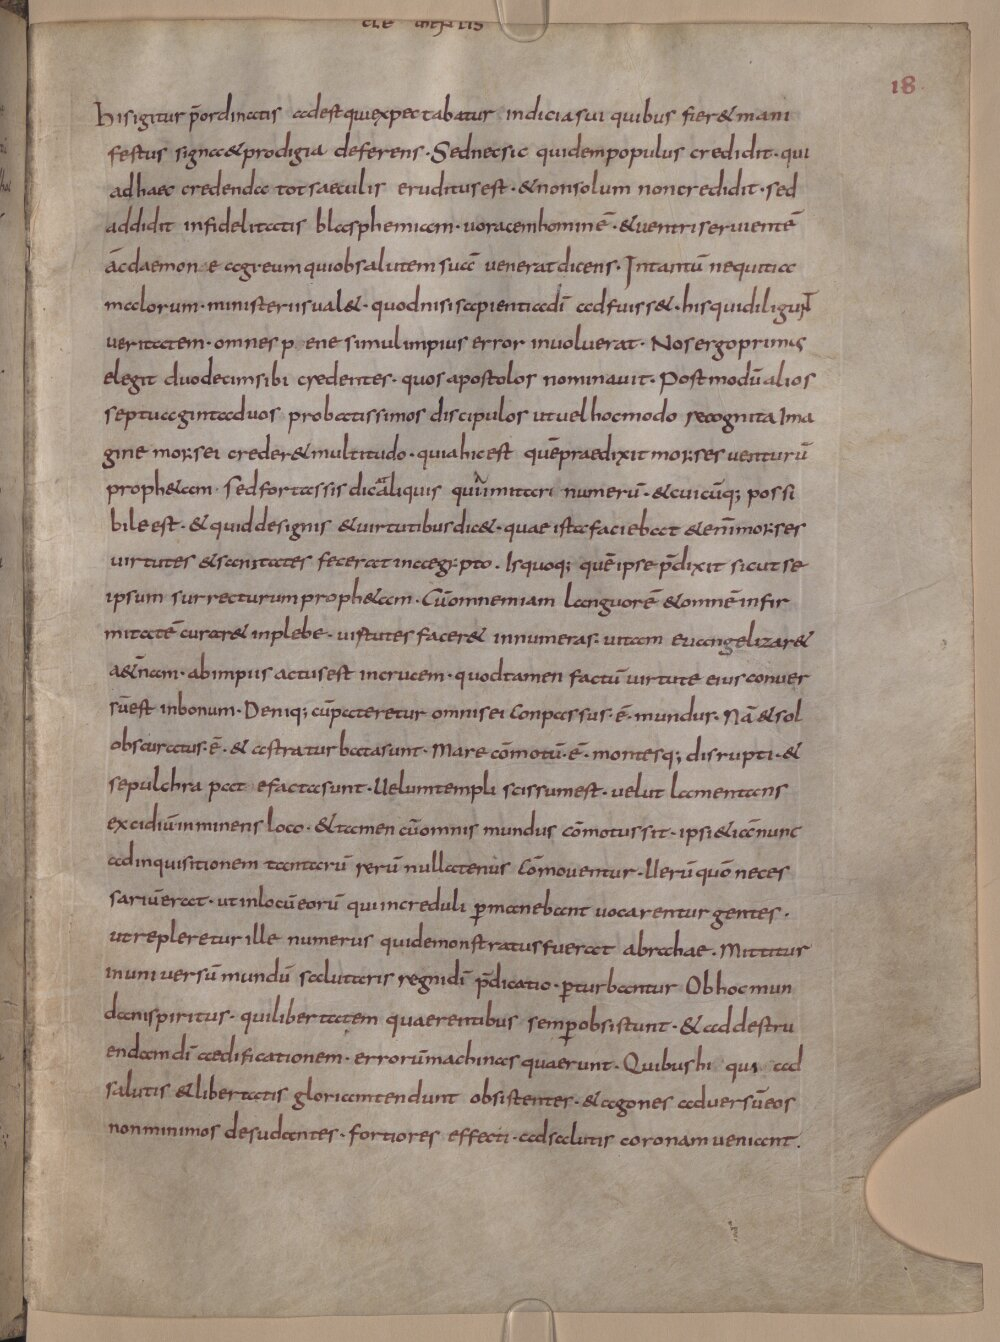 CLE MENTIS
18
hisigitur p̄ordinatis adest quiexpectabatur indiciasui quibus fier& mani
festus signa&prodigia deferens · Sednecsic quidempopulus credidit · qui
adhaec credenda totsaeculis eruditusest · &nonsolum noncredidit · sed
addidit infidelitatis blasphemiam · uoracemhominē · &uentriseruientē
ācdaemone agreum quiobsalutem suā uenerat dicens · Intantū nequitia
malorum · ministeriisual& · quodnisi sapientiadī adfuiss& · hisquidiligunt
ueritatem · omnes pene simul impius error inuoluerat · Nosergoprimis
elegit duodecimsibi credentes · quos apostolos nominauit · Postmodū alios
septuagintaduos probatissimos discipulos utuelhocmodo recognita Ima
gine morsei creder& multitudo · quiahicest quēpraedixit morses uenturū
proph&am · sedfortassis dicat aliquis quiuis imitari numerū · &cuicūq; possi
bileest · &quiddesignis &uirtutibusdic& · quae istafaciebat &enī morses
uirtutes &sanitates fecerat inaegypto · Isquoq; quēipse p̄dixit sicut se
ipsum surrecturum proph&am · Cūomnemiam languorē &omnē infir
mitatē curar& inplebe · uirtutes facer& innumeras · uitam euangelizar&
a&n̄am · abimpiis actusest incrucem · quodtamen factū uirtute eius conuer
sūest inbonum · Deniq; cūpateretur omnis ei conpassus · ē · mundus · Nā & sol
obscuratus · ē · & astraturbatasunt · Mare cōmotū · ē · montesq; disrupti · &
sepulchra patefactasunt · Uelumtempli scissumest · uelut lamentans
excidiū inminens loco · &tamen cūomnis mundus cōmotussit · ipsi &iā nunc
adinquisitionem tantarū rerū nullatenus cōmouentur · Uerū quō neces
sariūerat · utinlocū eorū qui increduli pmanebant uocarentur gentes ·
utrepleretur ille numerus quidemonstratusfuerat abrahae · Mittitur
inuniuersū mundū salutaris regnidī p̄dicatio · pturbantur Obhoc mun
danispiritus · quilibertatem quaerentibus sempobsistunt · &addestru
endam dī aedificationem · errorū machinas quaerunt · Quibus hi qui ad
salutis &libertatis gloriamtendunt obsistentes · &agones aduersū eos
nonminimos desudantes · fortiores effecti · adsalutis coronam ueniant ·